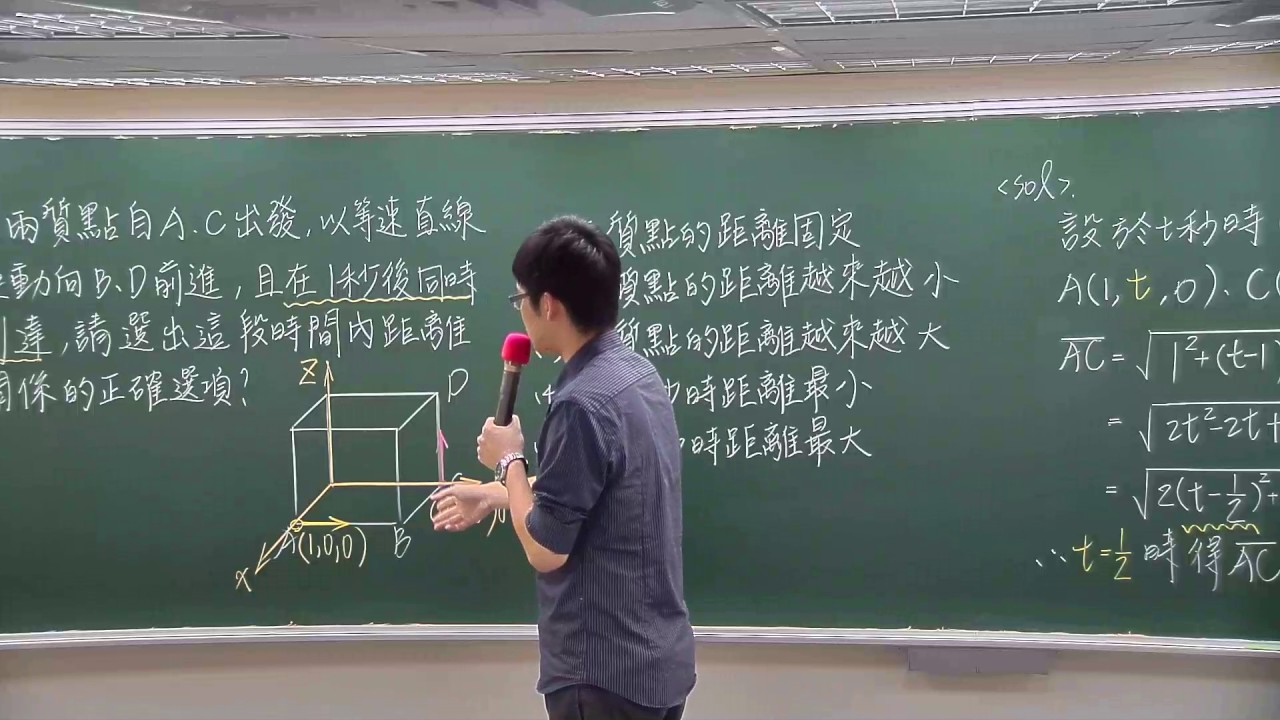 兩質點自A、C出發，以等速直線
動向B、D前進，且在1秒後同時
達，請選出這段時間內距離
關係的正確選項？
Z
D
A(1,0,0)
B
x
質點的距離固定
質點的距離越來越小
質點的距離越來越大
時距離最小
時距離最大
<sol>.
設於t秒時
A(1,t,0)、C(
AC=√1²+(t-1)
=√2t²-2t+
=√2(t-1/2)²+
∴t=1/2時得AC